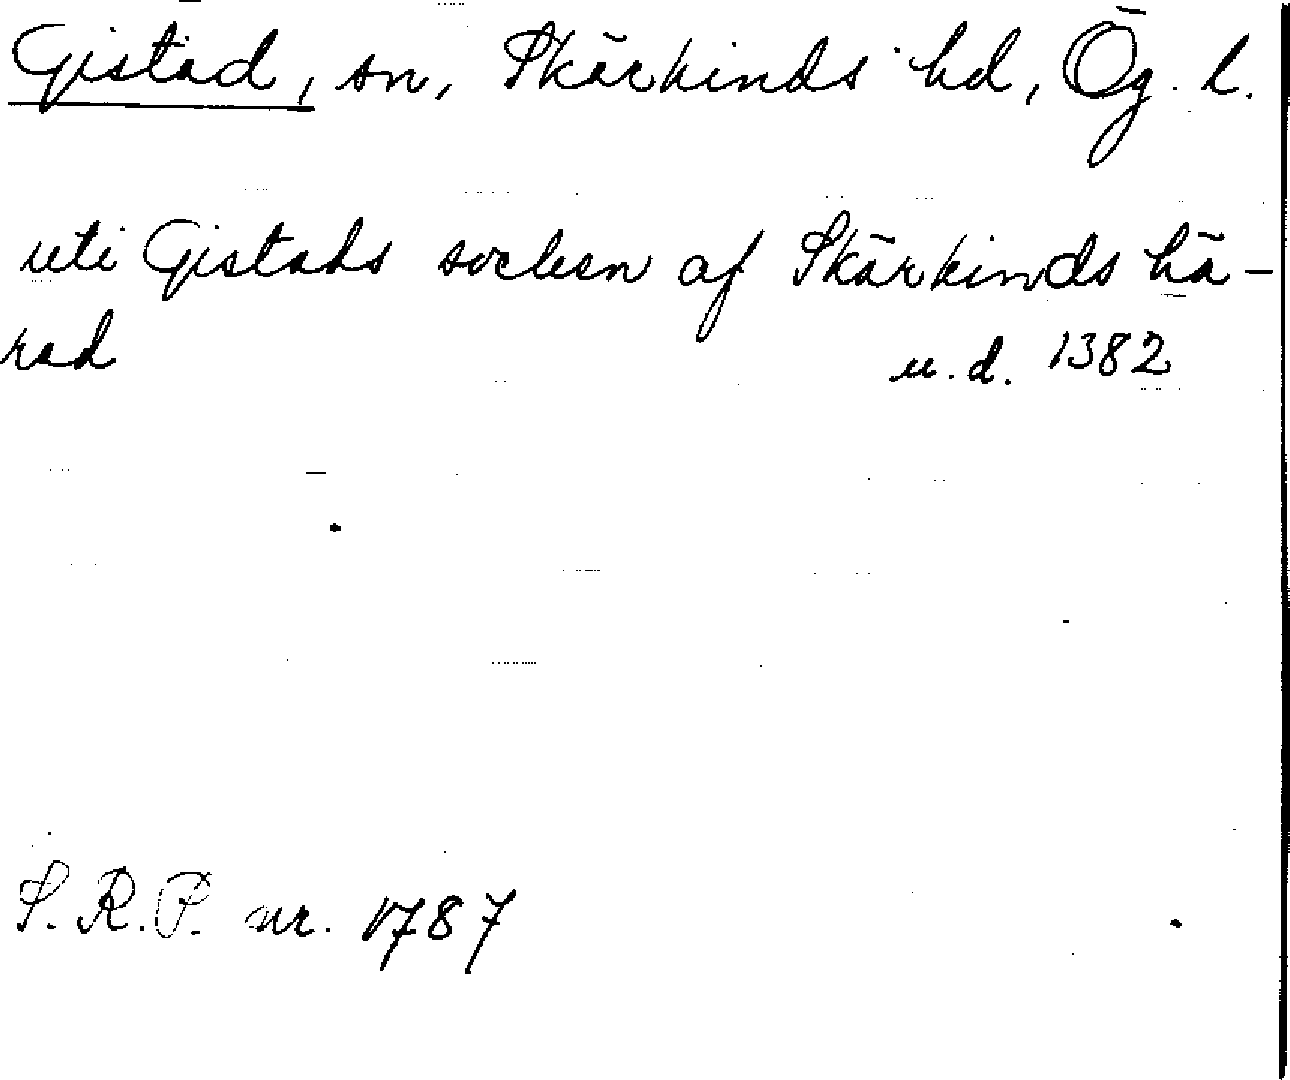 Gistad, sn, Skärkinds hd, Ög. l.
uti Gistads sockn af Skärkinds hä-
rad
u.d. 1382
S.R.P. nr. 1787